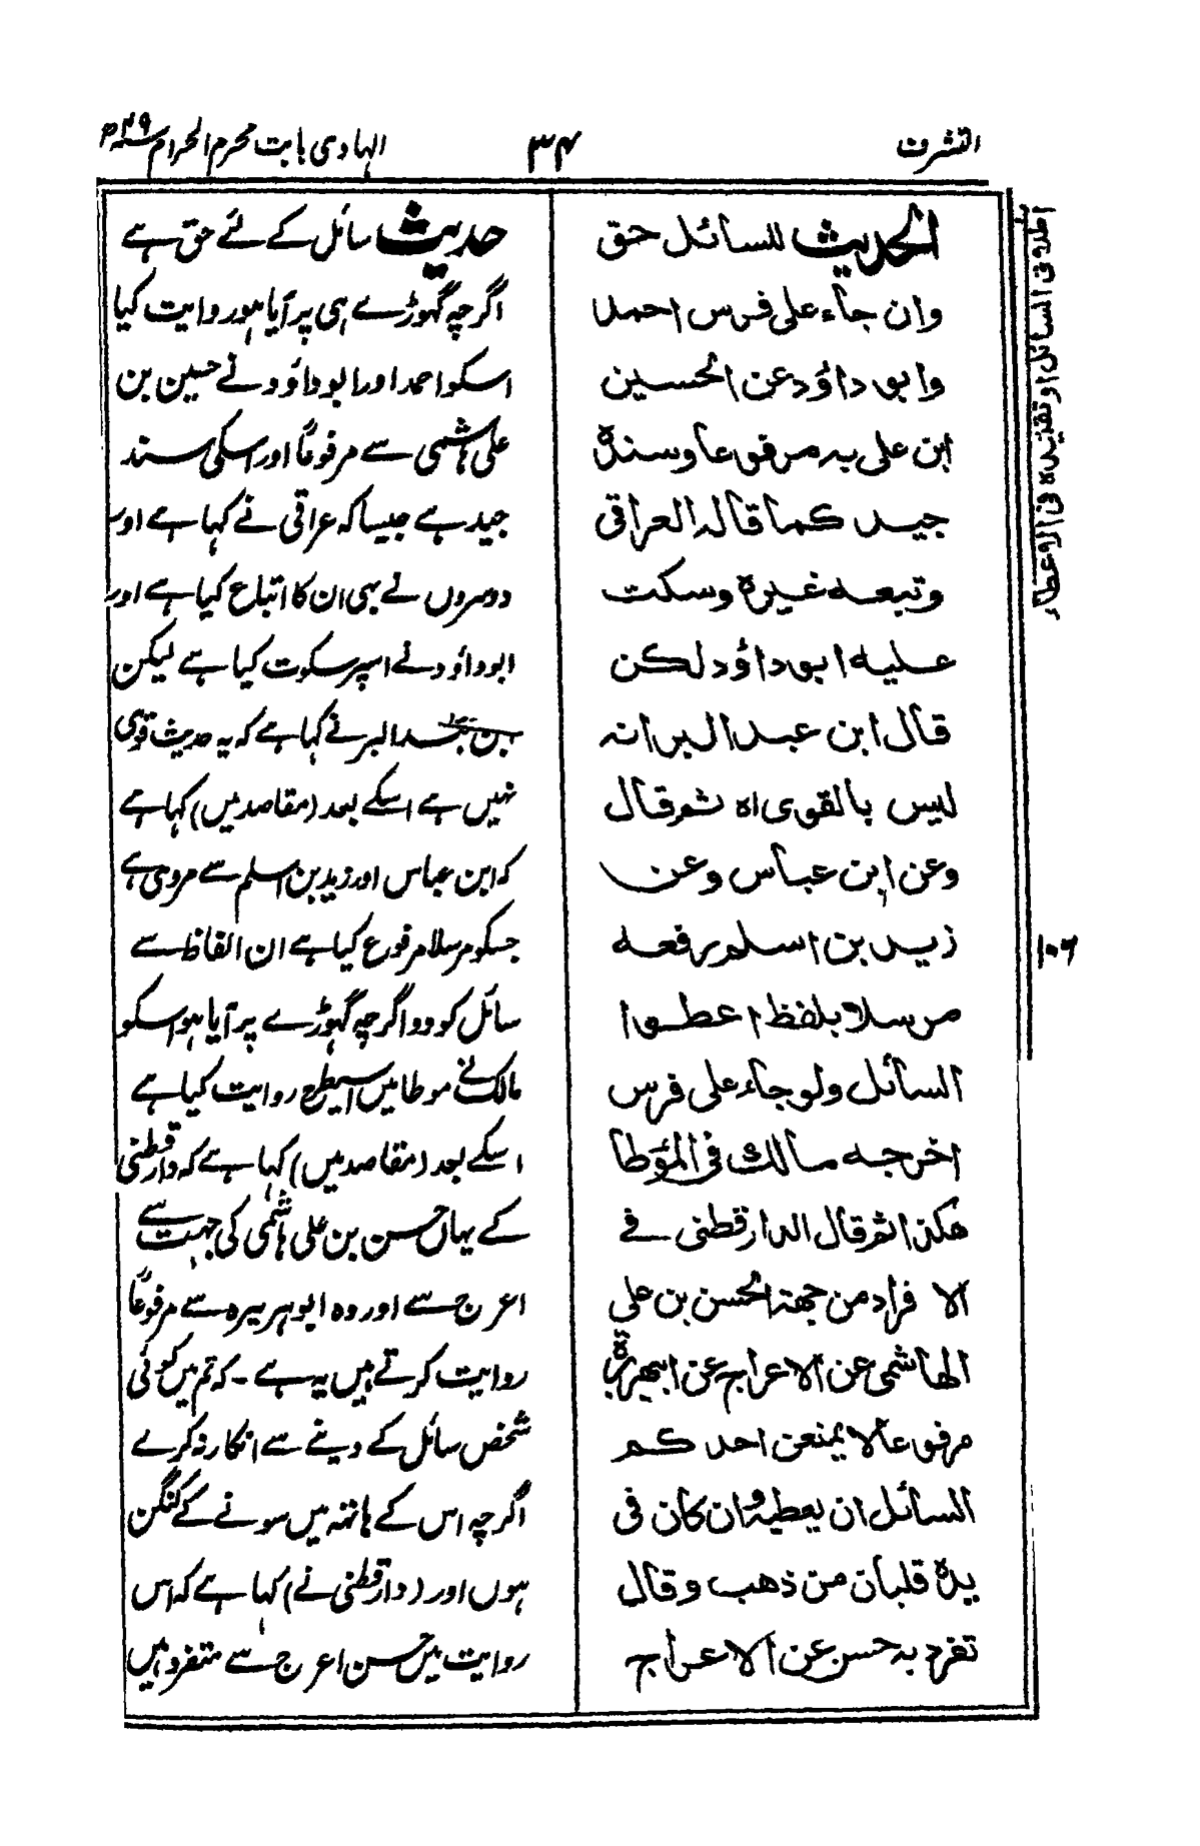 التشرف
۳۴
الہادی بابت محرم الحرام سنہ ۴۹ھ
الحدیث للسائل حق
وان جاء علی فرس احمد
وابو داؤد عن الحسین
ابن علی بہ مرفوعا وسندہ
جید کما قالہ العراقی
وتبعہ غیرہ وسکت
علیہ ابو داؤد لکن
قال ابن عبد البر انہ
لیس بالقوی اہ ثم قال
وعن ابن عباس وعن
زید بن اسلم رفعہ
مرسلا بلفظ اعطوا
السائل ولو جاء علی فرس
اخرجہ مالک فی المؤطا
ھکذا ثم قال الدارقطنی فے
الافراد من جھۃ الحسن بن علی
الھاشمی عن الاعرج عن ابیھریرۃ
مرفوعا لا یمنعن احدکم
السائل ان یعطیہ وان کان فی
یدہ قلبان من ذھب وقال
تفرد بہ حسن عن الاعرج
حدیث سائل کے لئے حق ہے
اگرچہ گہوڑے ہی پر آیا ہو روایت کیا
اسکو احمد اور ابو داؤد نے حسین بن
علی ہاشمی سے مرفوعاً اور اسکی سند
جید ہے جیسا کہ عراقی نے کہا ہے اور
دوسروں نے بہی ان کا اتباع کیا ہے اور
ابو داؤد نے اسپر سکوت کیا ہے لیکن
ابن عبد البر نے کہا ہے کہ یہ حدیث قوی
نہیں ہے اسکے بعد (مقاصد میں) کہا ہے
کہ ابن عباس اور زید بن اسلم سے مروی ہے
جسکو مرسلا مرفوع کیا ہے ان الفاظ سے
سائل کو دو اگرچہ گہوڑے پر آیا ہو اسکو
مالک نے موطا میں اسیطرح روایت کیا ہے
اسکے بعد (مقاصد میں) کہا ہے کہ دارقطنی
کے یہاں حسن بن علی ہاشمی کی جہت سے
اعرج سے اور وہ ابوہریرہ سے مرفوعاً
روایت کرتے ہیں یہ ہے ۔ کہ تم میں کوئی
شخص سائل کے دینے سے انکار نہ کرے
اگرچہ اس کے ہاتہ میں سونے کے کنگن
ہوں اور (دارقطنی نے) کہا ہے کہ اس
روایت میں حسن اعرج سے متفرد ہیں
السائل او تقیندہ فی الاعطاء
۱۰۶